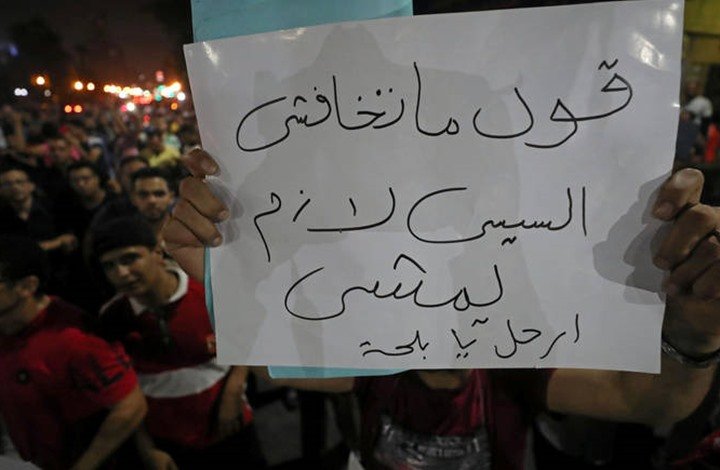 قول ماتخافشي
السيسي لازم
يمشي
ارحل يا بلحة